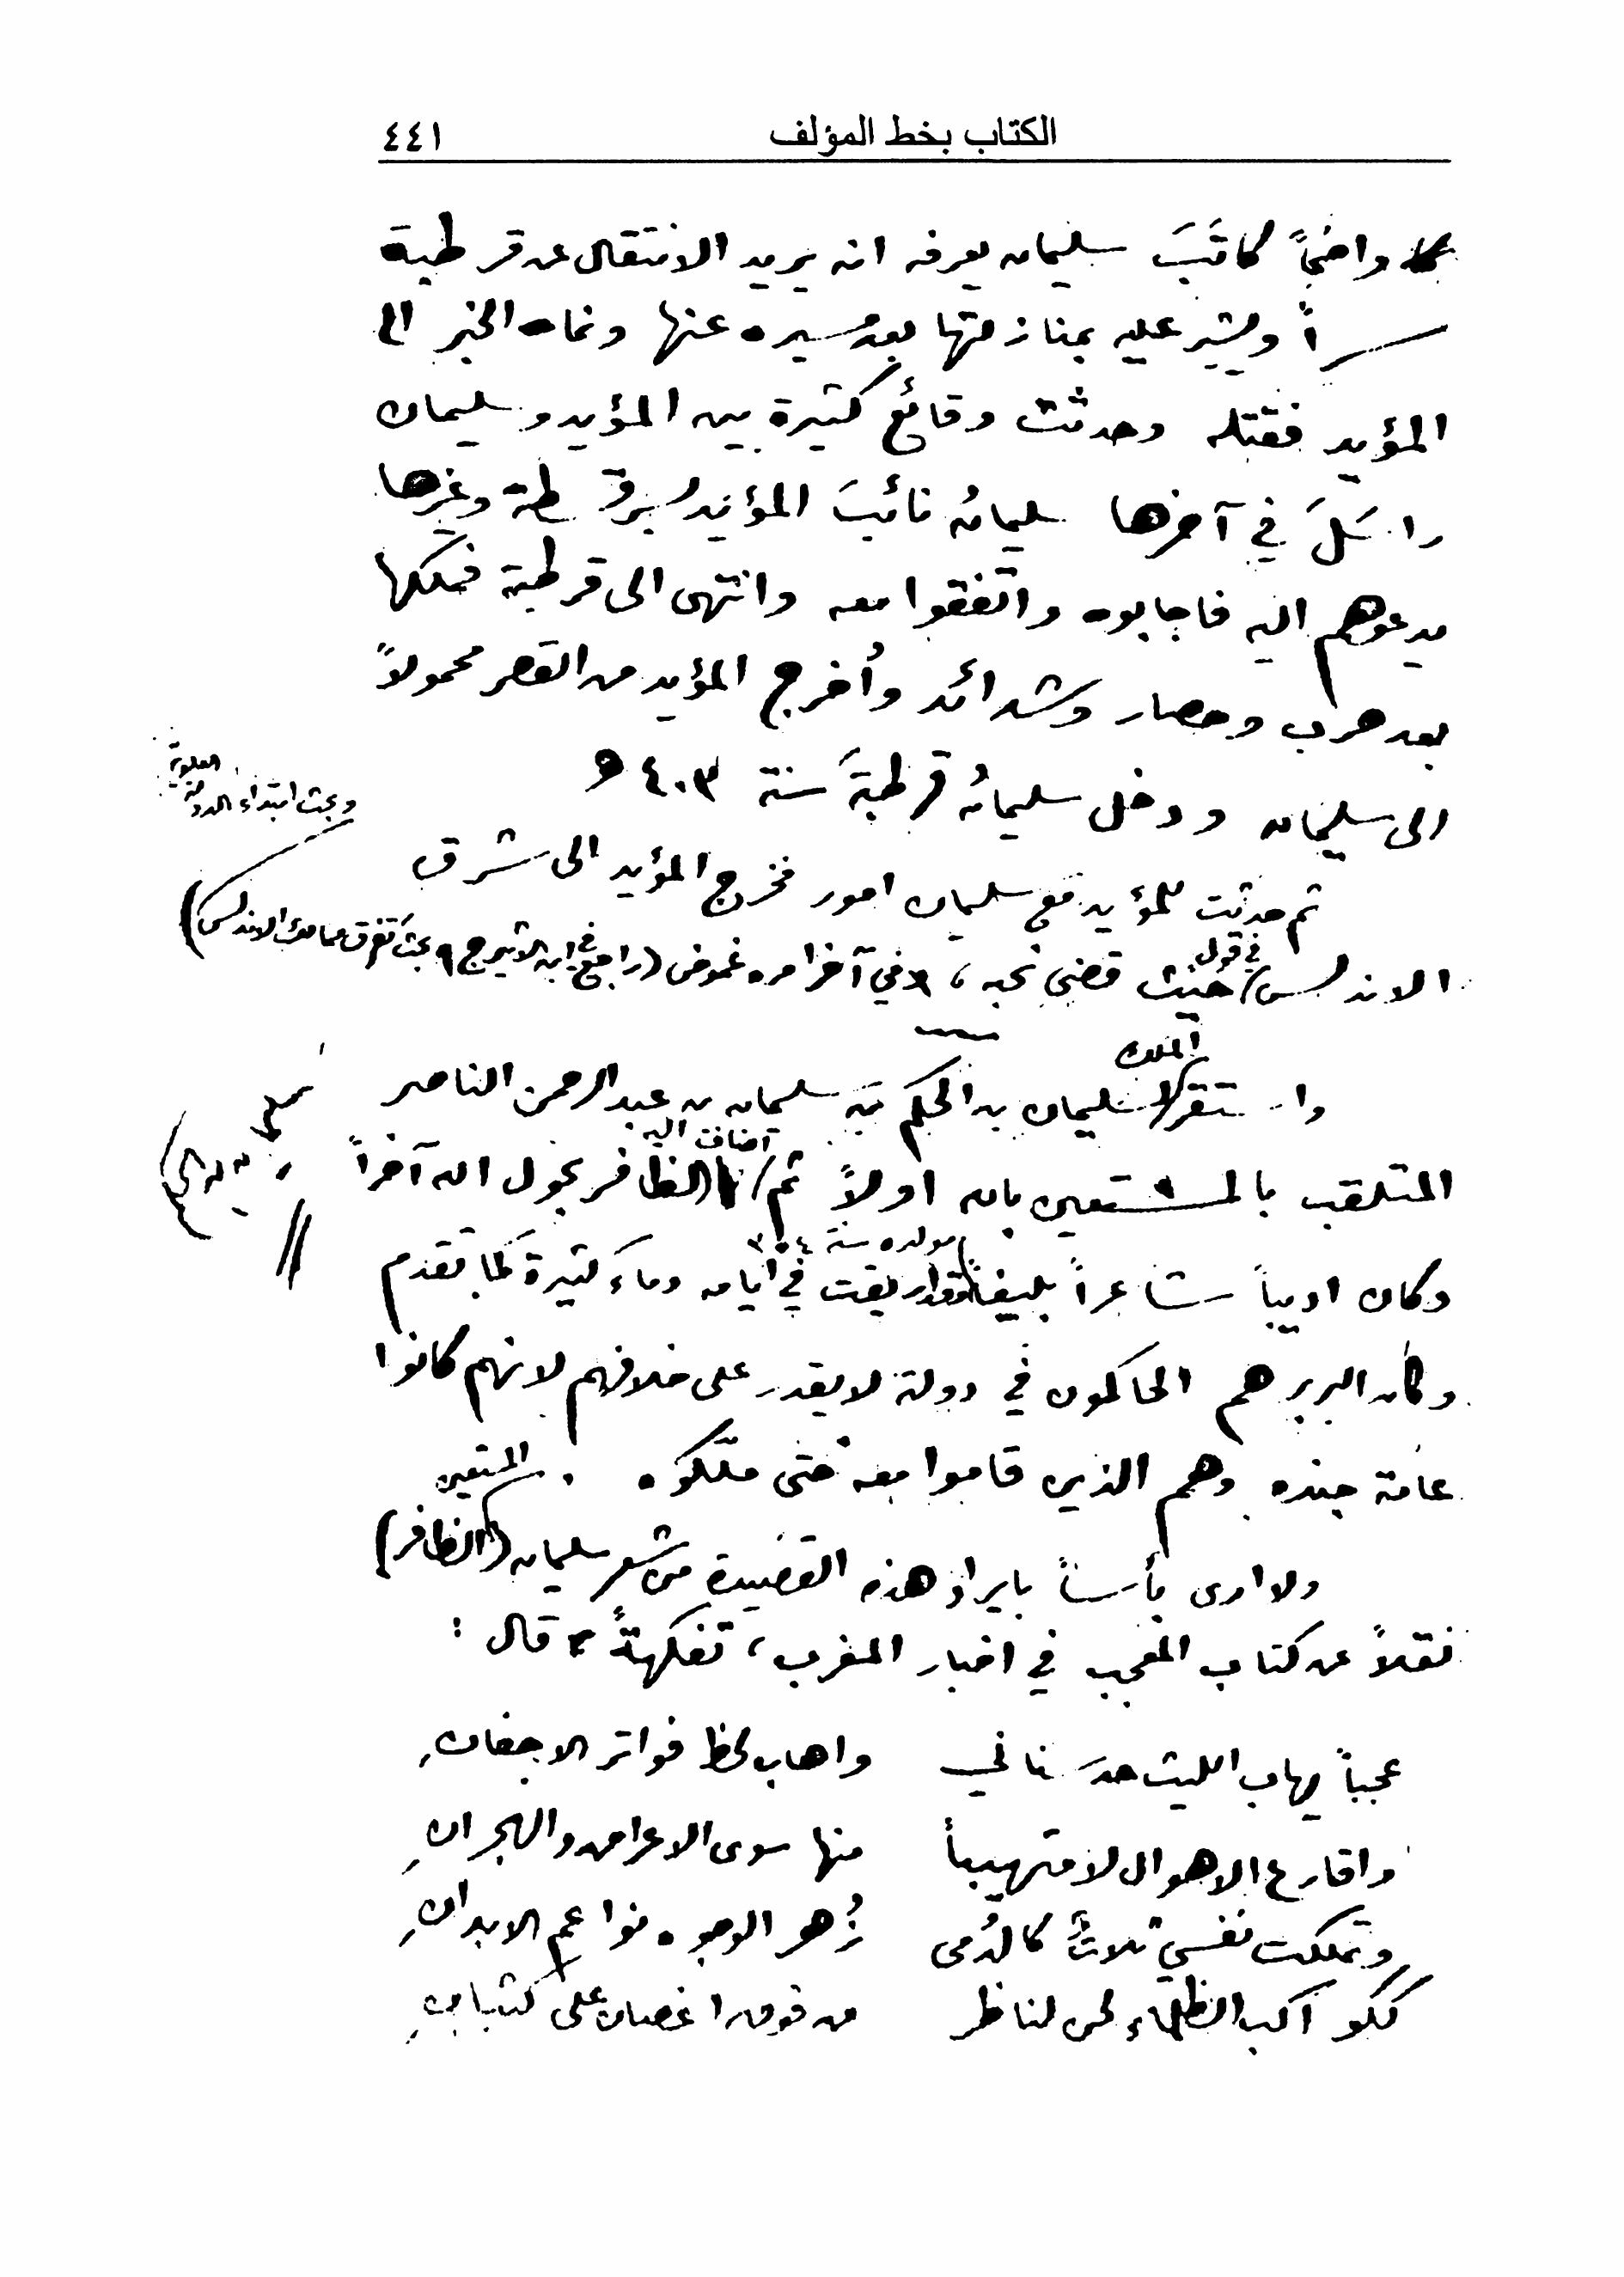 الكتاب بخط المؤلف ٤٤١
واضحاً كاتَبَ سليمان يعرفه انه يريد الانتقال عن قرطبة
سراً ويشير عليه بمنازلتها بعد مسيره عنها ونماه الخبر الى
المؤيد فقتله وحدثت وقائع كثيرة بين المؤيد وسليمان
راسَلَ في آخرها سليمانُ نائبَ المؤيد بسرقسطة وغيرها
يدعوهم اليه فاجابوه واتفقوا معه وانتهى الى قرطبة فملكها
بعد حرب وحصار وشدائد وأُخرج المؤيد من القصر محمولاً
الى سليمان ودخل سليمانُ قرطبةَ سنة ٤٠٣ ه
ثم حدثت للمؤيد مع سليمان امور فخرج المؤيد الى شرق
الاندلس حيث قضى نحبه، في قول وفي آخر امره غموض (راجع في ابن الاثير ج ٩ بحث تفرق ممالك الاندلس)
وبحث ابتداء الدولة العلوية
واستقر الملك لسليمان بن الحكم بن سليمان بن عبد الرحمن الناصر
المتلقب بالمستعين بالله اولاً ثم اضاف اليه الظافر بحول الله آخراً
وكان اديباً شاعراً بليغاً مولده سنة ٣٥٤ وقد اريقت في ايامه دماء كثيرة كما تقدم
وكان البربر هم الحاكمون في دولة لا يقدر على خلافهم لانهم كانوا
عامة جنده وهم الذين قاموا معه حتى ملّكوه .
ولا ارى بأساً بايراد هذه القصيدة من شعر سليمان المستعين (الظافر)
نقلاً عن كتاب المعجب في اخبار المغرب، تفكهةً قال :
عجباً يهاب الليث حد سناني واهاب لحظ فواتر الاجفانِ
واقارع الاهوال لا متهيباً منها سوى الاعراض والهجرانِ
وتملكت نفسي ثلاثٌ كالدُمى زُهر الوجوه نواعم الابدانِ
ككواكب الظلماء لحن لناظر من فوق اغصان على كثبانِ